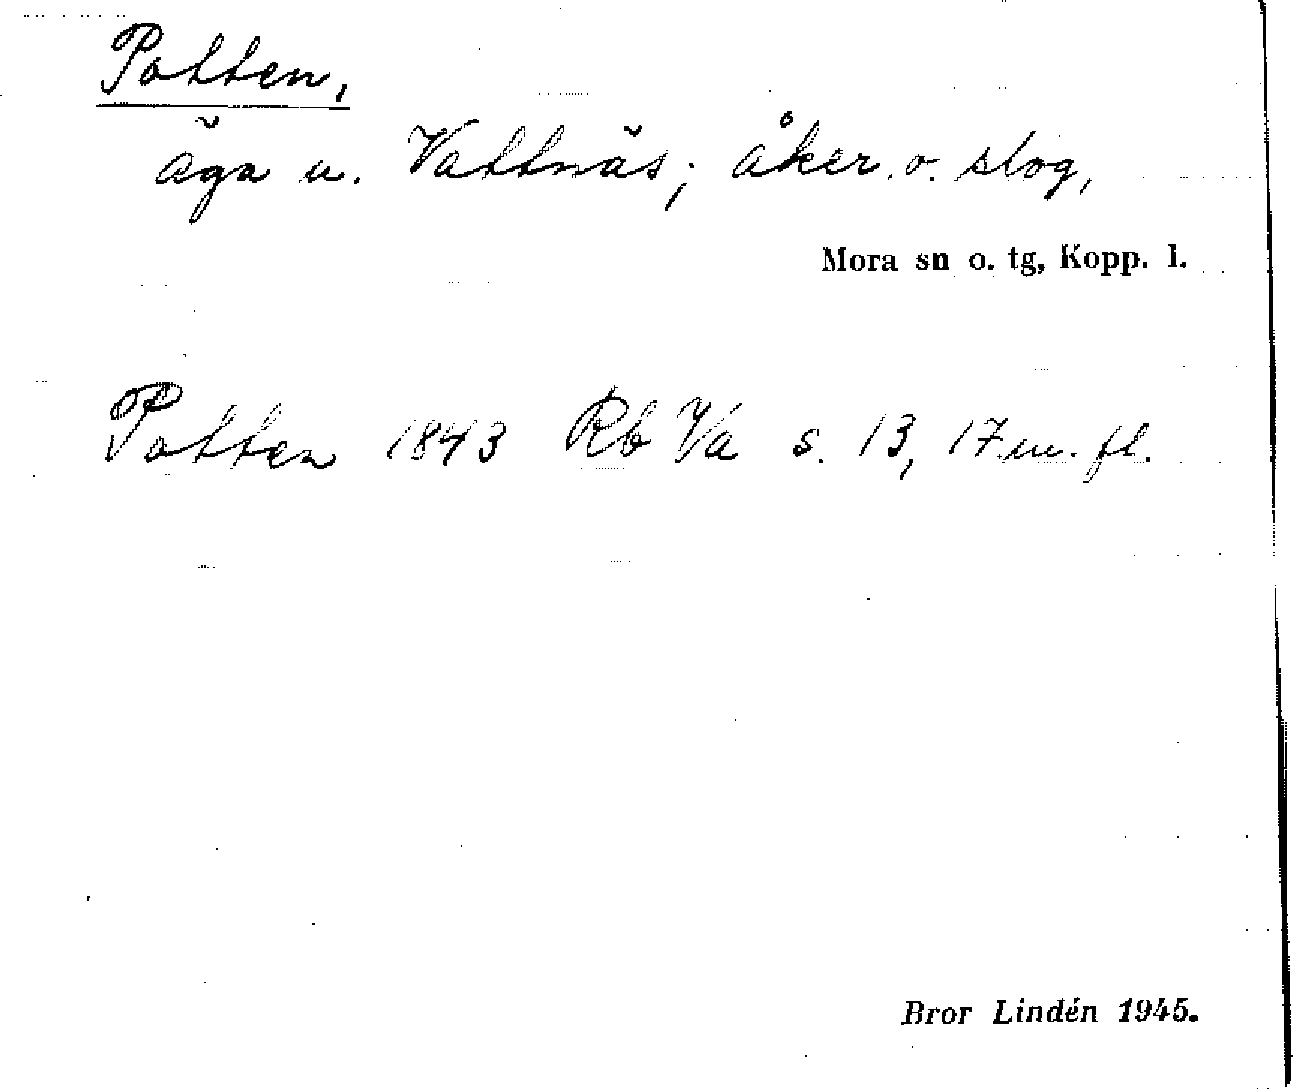 Potten,
äga u. Vattnäs; åker o. slog,
Mora sn o. tg, Kopp. l.
Potten 1843 Rb Va s. 13, 17 m. fl.
Bror Lindén 1945.